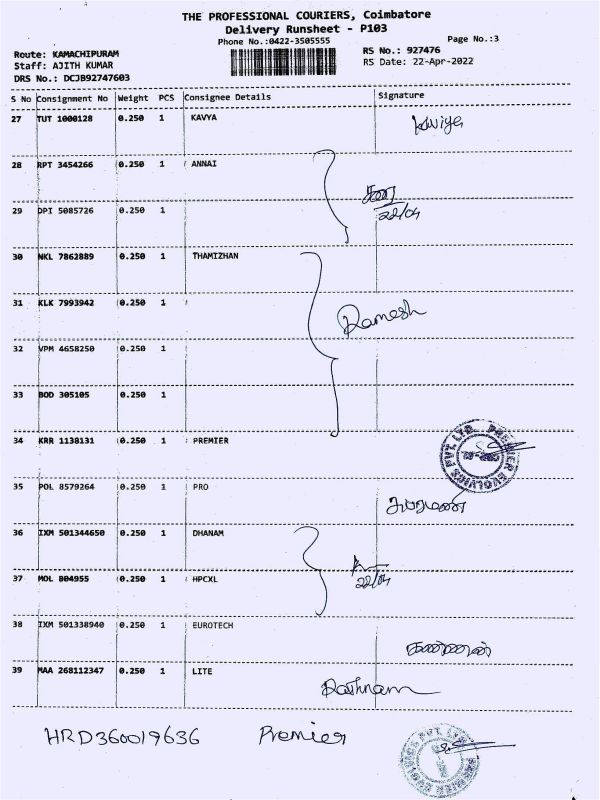 THE PROFESSIONAL COURIERS, Coimbatore
Delivery Runsheet - P103
Phone No.:0422-3505555
Page No.:3
Route: KAMACHIPURAM
RS No.: 927476
Staff: AJITH KUMAR
RS Date: 22-Apr-2022
DRS No.: DCJB92747603
S No Consignment No Weight PCS Consignee Details Signature
27 TUT 1000128 0.250 1 KAVYA Kaviya
28 RPT 3454266 0.250 1 ANNAI
22/04
29 DPI 5085726 0.250 1
30 NKL 7862889 0.250 1 THAMIZHAN
31 KLK 7993942 0.250 1
Ramesh
32 VPM 4658250 0.250 1
33 BOD 305105 0.250 1
34 KRR 1138131 0.250 1 PREMIER
PREMIER EVOLVICS PVT LTD.
35 POL 8579264 0.250 1 PRO
36 IXM 501344650 0.250 1 DHANAM
37 MOL 804955 0.250 1 HPCXL
22/04
38 IXM 501338940 0.250 1 EUROTECH
39 MAA 268112347 0.250 1 LITE
Rathnam
HRD360019636 Premier
PREMIER EVOLVICS PVT LTD.